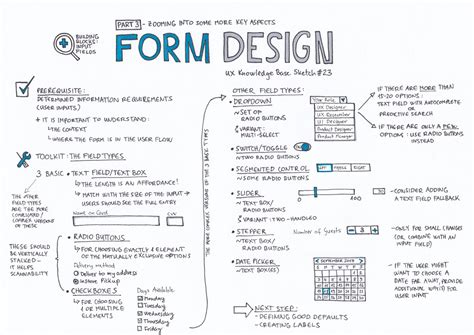 BUILDING
BLOCKS:
INPUT
FIELDS
PART 3 - ZOOMING INTO SOME MORE KEY ASPECTS
FORM DESIGN
UX Knowledge Base Sketch #23
PREREQUISITE:
DETERMINED INFORMATION REQUIREMENTS
(USER INPUTS)
+ IT IS IMPORTANT TO UNDERSTAND:
THE CONTEXT
WHERE THE FORM IS IN THE USER FLOW!
TOOLKIT: THE FIELD TYPES
3 BASIC
TEXT FIELD/TEXT BOX
THE LENGTH IS AN AFFORDANCE!
MATCH WITH THE SIZE OF THE INPUT → USERS
SHOULD SEE THE FULL ENTRY
Name on Card
CVV
THE OTHER
FIELD TYPES
ARE THE MORE
COMPLEX
VERSIONS OF
THESE
RADIO BUTTONS
FOR CHOOSING EXACTLY 1 ELEMENT
OF THE MUTUALLY EXCLUSIVE OPTIONS
Delivery method
Deliver to my address
Instore Pickup
THESE
SHOULD BE
VERTICALLY
STACKED -
IT HELPS
SCANNABILITY
CHECKBOXES
FOR CHOOSING
1 OR MULTIPLE
ELEMENTS
Days Available
Monday
Tuesday
Wednesday
Thursday
THE MORE COMPLEX VERSIONS OF THE 3 BASIC TYPES
OTHER FIELD TYPES:
DROPDOWN
~ SET OF
RADIO BUTTONS
VARIANT:
MULTI-SELECT
Your Role
UX Designer
UX Researcher
UI Designer
Product Designer
Product Manager
IF THERE
ARE MORE THAN
15-20 OPTIONS:
TEXT FIELD WITH AUTOCOMPLETE OR
PREDICTIVE SEARCH
IF THERE ARE ONLY A FEW
OPTIONS: USE RADIO BUTTONS
INSTEAD
SWITCH/TOGGLE
TWO RADIO BUTTONS
SEGMENTED CONTROL
~ SOME RADIO BUTTONS
LEFT
MIDDLE
RIGHT
SLIDER
~ TEXT BOX/
RADIO BUTTONS
VARIANT: TWO-HANDLED
- CONSIDER ADDING
A TEXT FIELD FALLBACK
STEPPER
~ TEXT BOX/
RADIO BUTTONS
Number of Guests
3
- ONLY FOR SMALL CHANGES
(OR COMBINE WITH AN
INPUT FIELD)
DATE PICKER
~ TEXT BOX(ES)
SEPTEMBER
- IF THE USER MIGHT
WANT TO CHOOSE A
DATE FAR AWAY, PROVIDE
ADDITIONAL INPUT(S) FOR
USER INPUT
NEXT STEP:
- DEFINING GOOD DEFAULTS
- CREATING LABELS